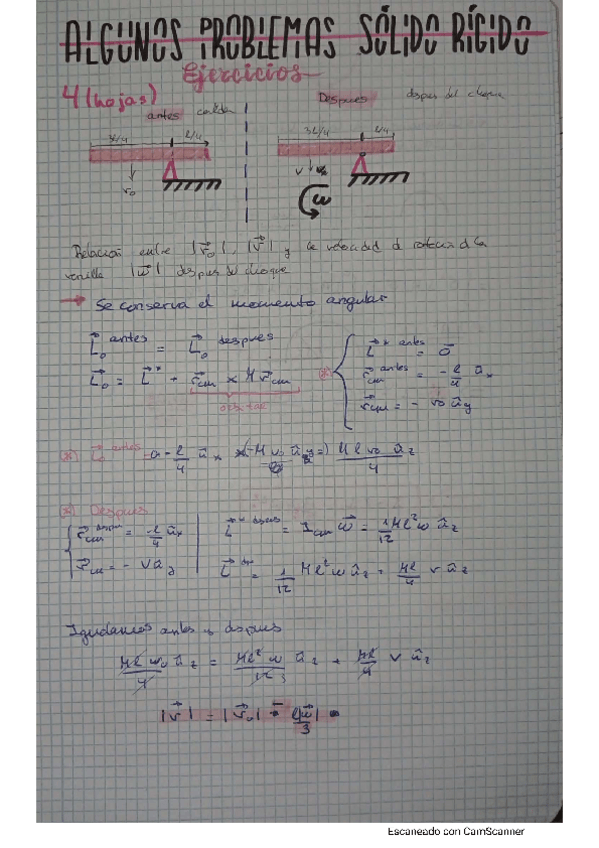 ALGUNOS PROBLEMAS SÓLIDO RÍGIDO
Ejercicios
4 (hojas)
antes caída
Despues despues del choque
3L/4 L/4
3L/4 L/4
v₀
v
ω
Relación entre |v⃗₀|, |v⃗| y la velocidad d rotación d la
varilla |ω⃗| despues del choque
→ Se conserva el momento angular
L⃗₀ antes = L⃗₀ despues
L⃗₀ = L⃗* + r⃗cm × M v⃗cm
orbital
(*) { L⃗* antes = 0⃗
r⃗cm antes = - l/4 ûx
v⃗cm = - v₀ ûy
(*) L⃗₀ antes = - l/4 ûx × (-M v₀ ûy) = M l v₀/4 ûz
(*) Despues
r⃗cm despues = - l/4 ûx
v⃗cm = - v ûy
L⃗* despues = Icm ω⃗ = 1/12 Ml²ω ûz
L⃗ des = 1/12 Ml²ω ûz + Ml/4 v ûz
Igualamos antes y despues
Ml v₀/4 ûz = Ml² ω/12 3 ûz + Ml/4 v ûz
|v⃗| = |v⃗₀| - l|ω⃗|/3
Escaneado con CamScanner